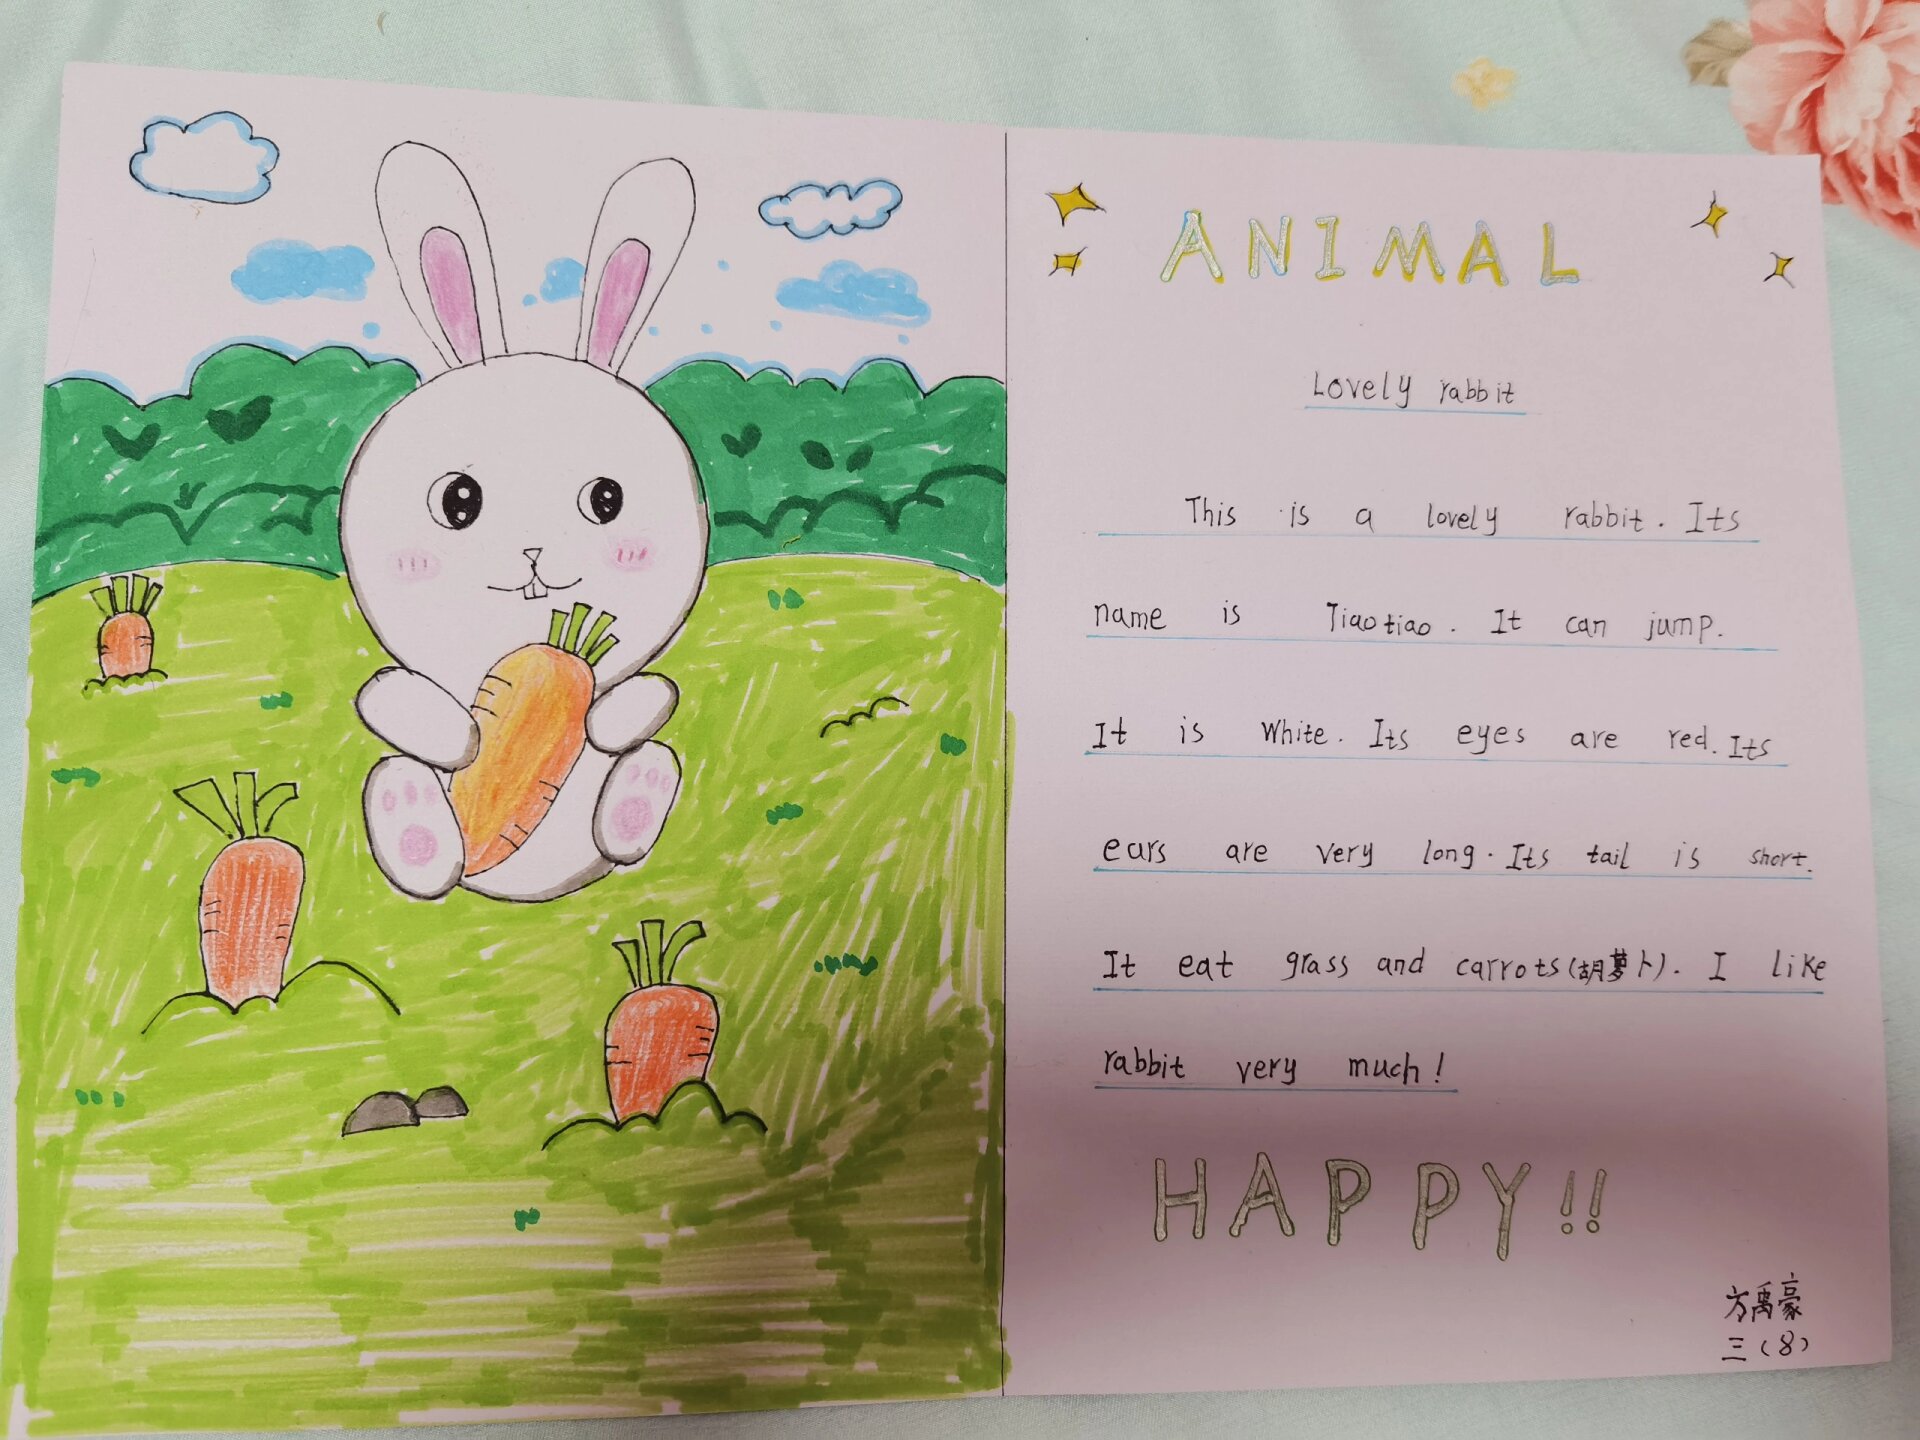 ANIMAL
Lovely rabbit
This is a lovely rabbit. Its
name is Tiaotiao. It can jump.
It is white. Its eyes are red. Its
ears are very long. Its tail is short.
It eat grass and carrots(胡萝卜). I like
rabbit very much!
HAPPY!!
方禹豪
三(8)